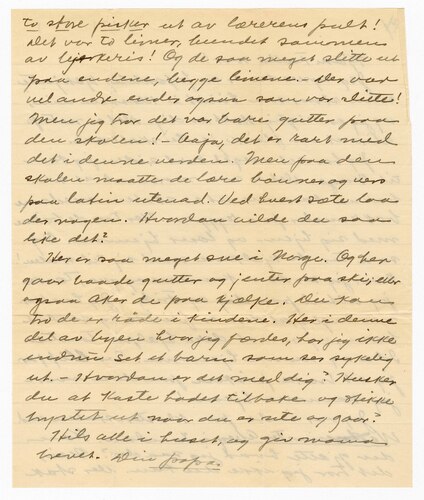 to store pisker ut av lærerens pult!
Det var to limer, bundet sammen
av bjørkeris! Og de saa meget slitte ut
paa endene, begge limene. - Der var
vel andre ender ogsaa som var slitte!
Men jeg tror det var bare gutter paa
den skolen! - Aaja, det er rart med
det i denne verden. Men paa den
skolen maatte de lære bønner og vers
paa latin utenad. Ved hvert sete laa
der nogen. Hvordan vilde du saa
like det?
Her er saa meget sne i Norge. Og her
gaar baade gutter og jenter paa ski, eller
ogsaa aker de paa kjælke. Du kan
tro de er røde i kindene. Her i denne
del av byen hvor jeg færdes, har jeg ikke
endnu set et barn som ser sykelig
ut. - Hvordan er det med dig? Husker
du at kaste hodet tilbake og stikke
brystet ut naar du er ute og gaar?
Hils alle i huset, og giv mama
brevet. Din papa.